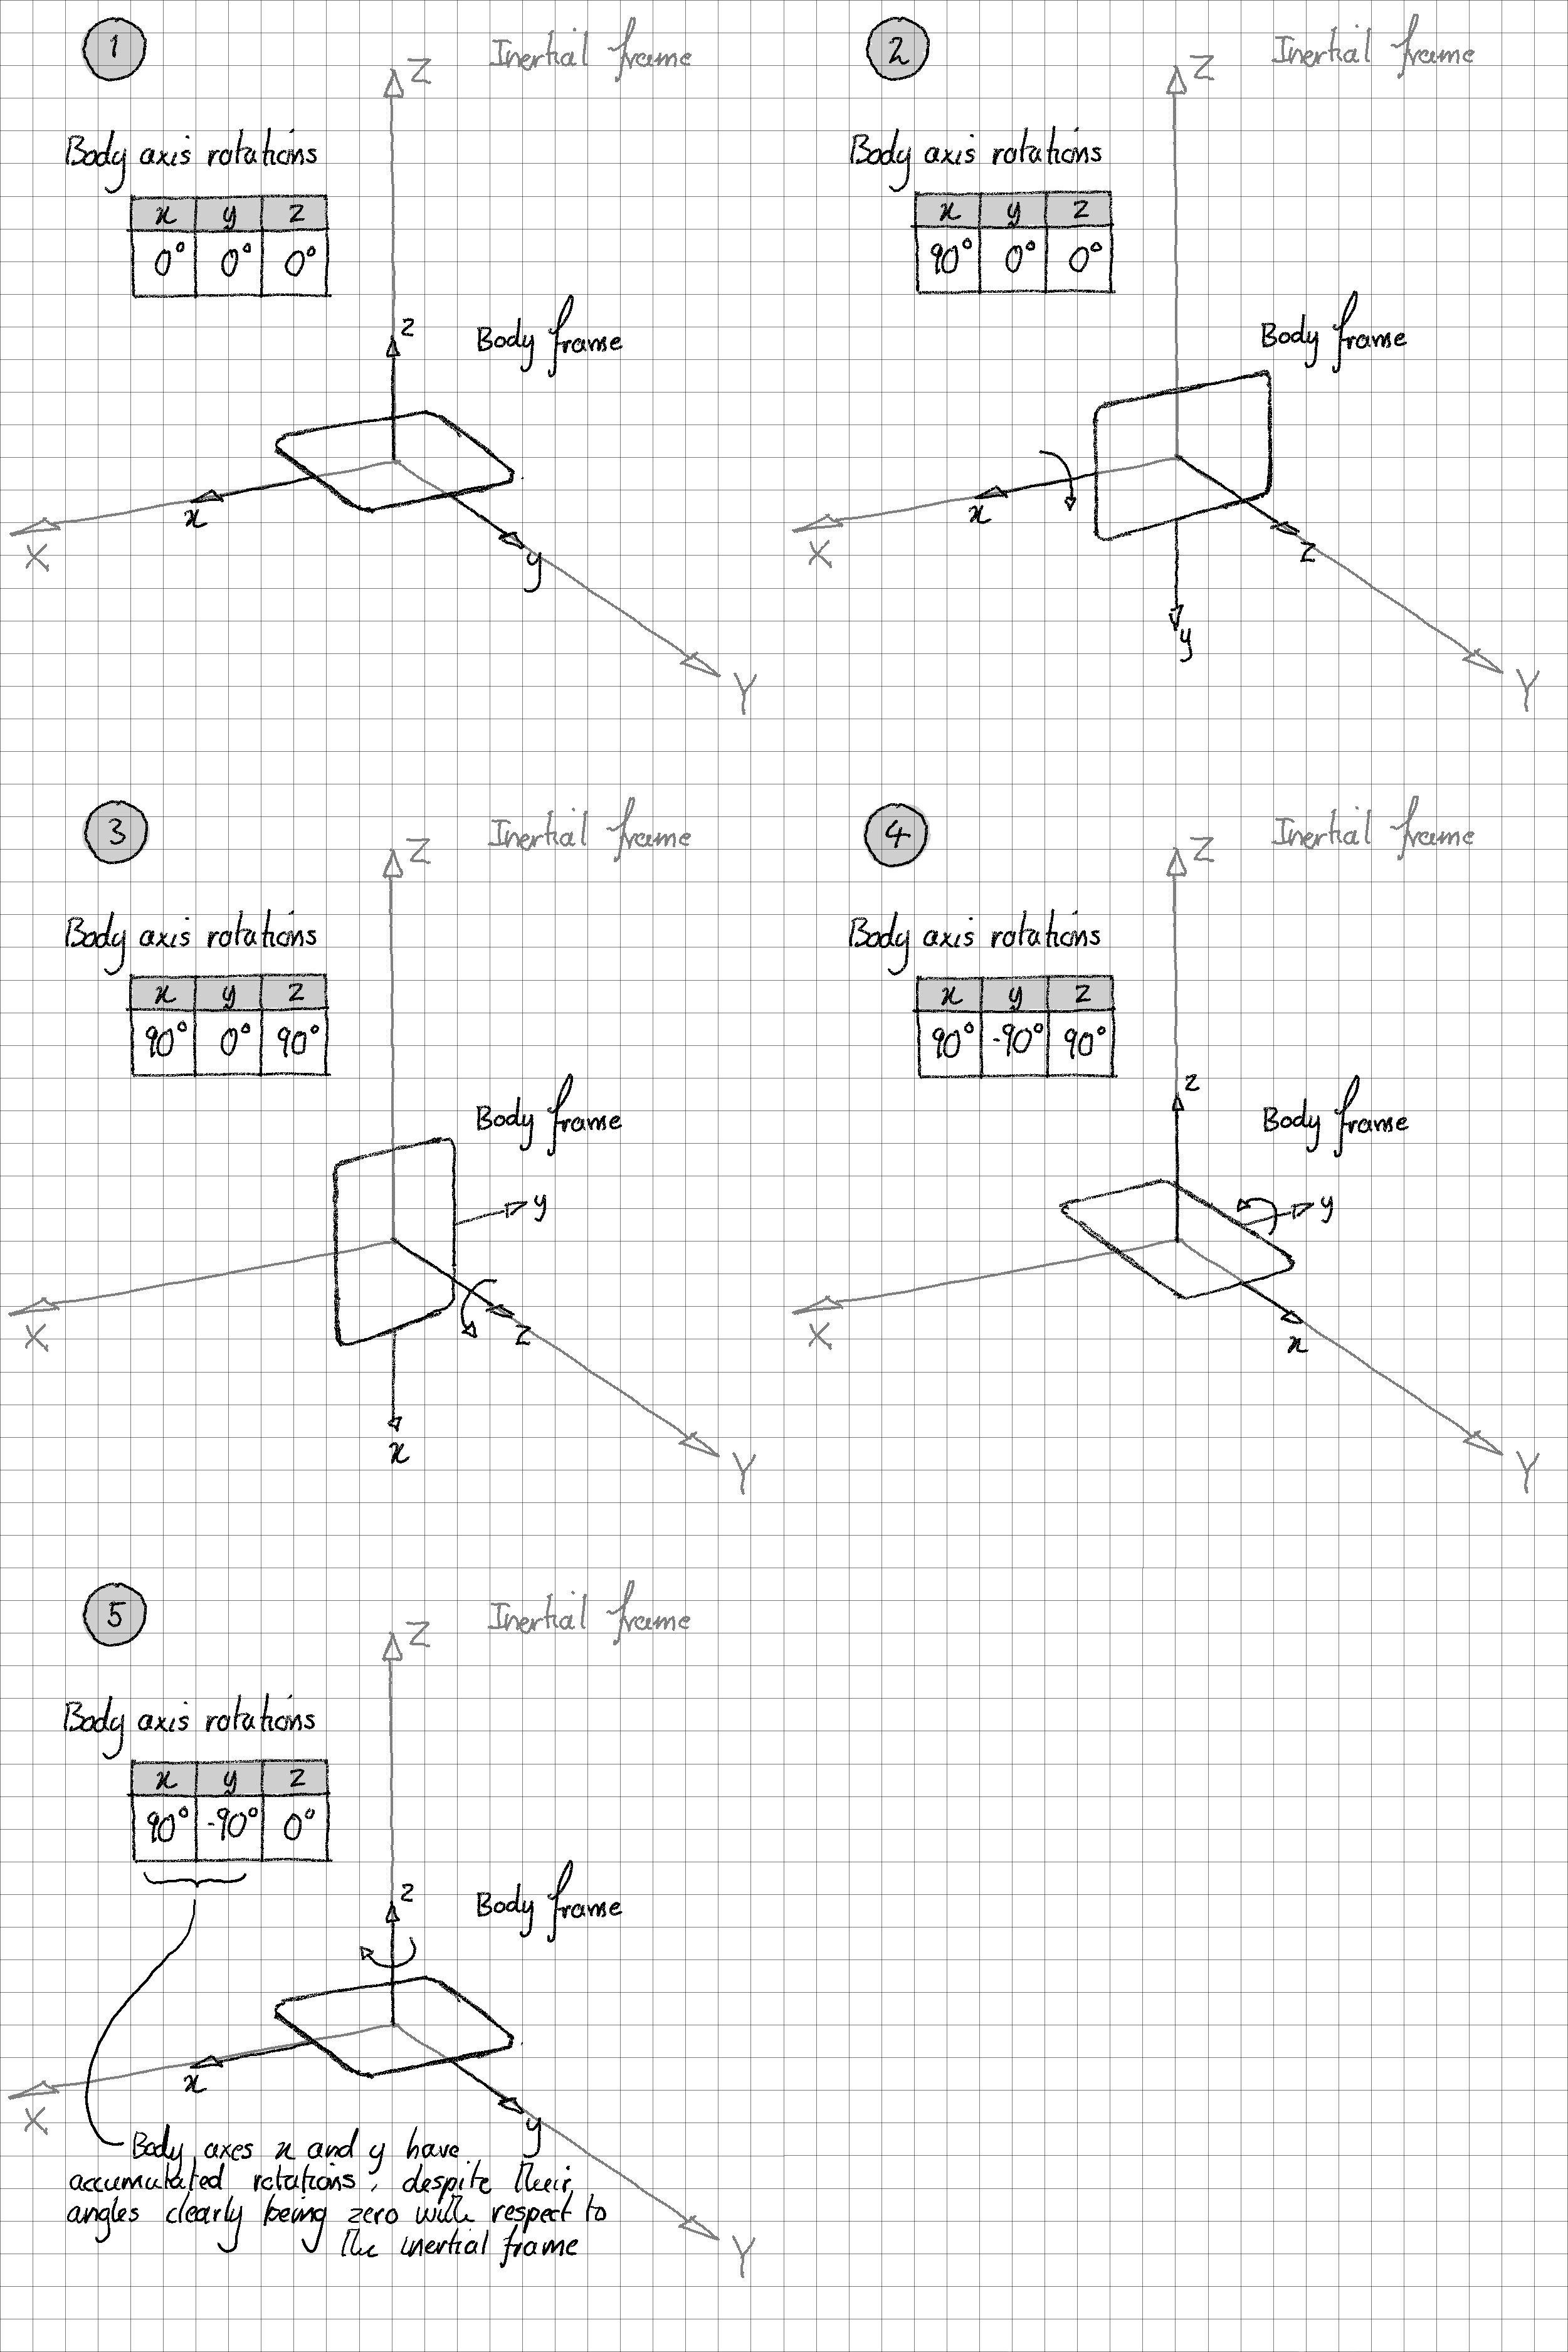 1
Inertial frame
Z
Body axis rotations
x y z
0° 0° 0°
z
Body frame
x
X
y
Y
2
Inertial frame
Z
Body axis rotations
x y z
90° 0° 0°
Body frame
x
X
z
y
Y
3
Inertial frame
Z
Body axis rotations
x y z
90° 0° 90°
Body frame
y
X
z
x
Y
4
Inertial frame
Z
Body axis rotations
x y z
90° -90° 90°
z
Body frame
y
X
x
Y
5
Inertial frame
Z
Body axis rotations
x y z
90° -90° 0°
z
Body frame
x
X
y
Body axes x and y have
accumulated rotations, despite their
angles clearly being zero with respect to
the inertial frame
Y